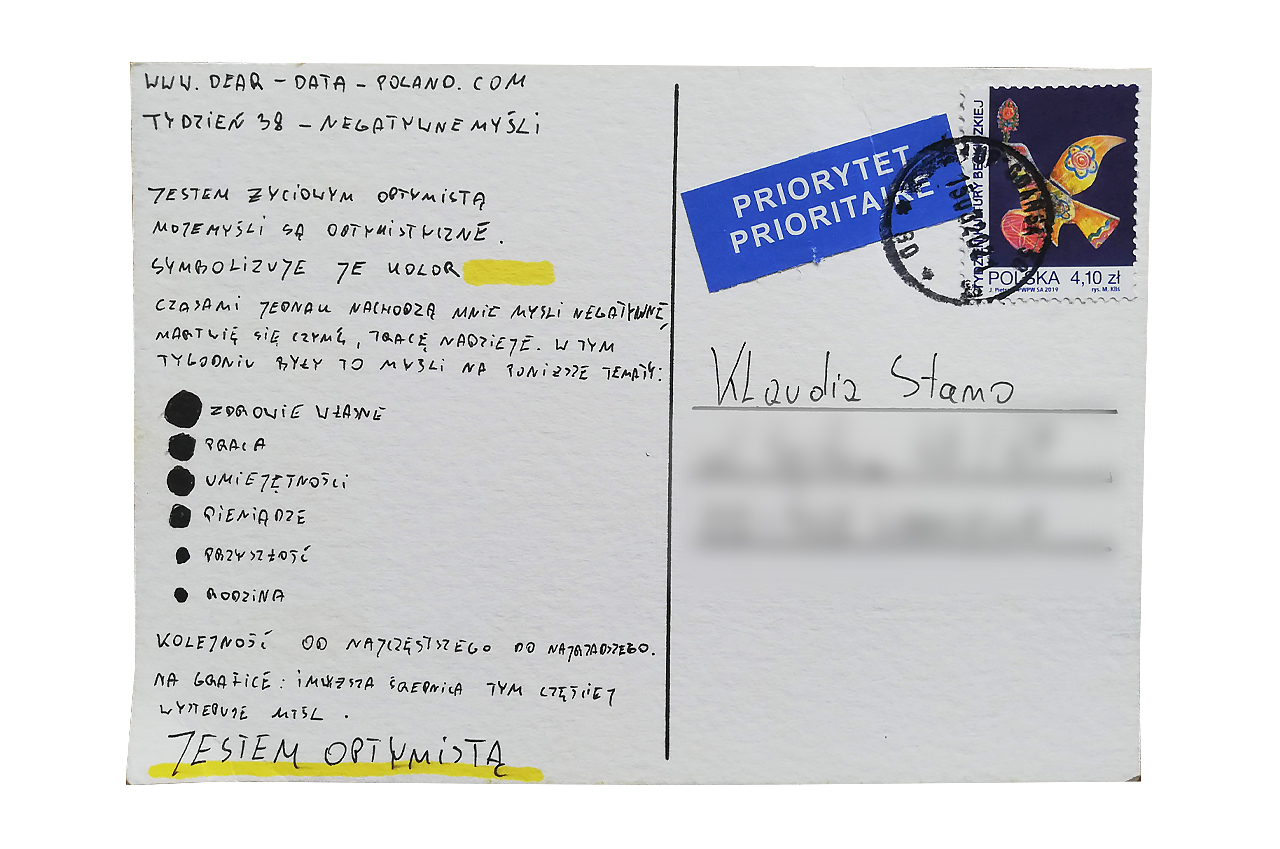 WWW. DEAR - DATA - POLAND. COM
TYDZIEŃ 38 - NEGATYWNE MYŚLI
JESTEM ŻYCIOWYM OPTYMISTĄ
MOJE MYŚLI SĄ OPTYMISTYCZNE.
SYMBOLIZUJE JE KOLOR
CZASAMI JEDNAK NACHODZĄ MNIE MYŚLI NEGATYWNE,
MARTWIĘ SIĘ CZYMŚ, TRACĘ NADZIEJE. W TYM
TYGODNIU BYŁY TO MYŚLI NA PONIŻSZE TEMATY:
ZDROWIE WŁASNE
PRACA
UMIEJĘTNOŚCI
PIENIĄDZE
PRZYSZŁOŚĆ
RODZINA
KOLEJNOŚĆ OD NAJCZĘSTSZEGO DO NAJRZADSZEGO.
NA GRAFICE: IM WIĘKSZA ŚREDNICA TYM CZĘŚCIEJ
WYSTĘPUJE MYŚL.
JESTEM OPTYMISTĄ
PRIORYTET
PRIORITAIRE
POLSKA 4,10 zł
WPW SA 2019 rys. M. Kłis
Klaudia Stano